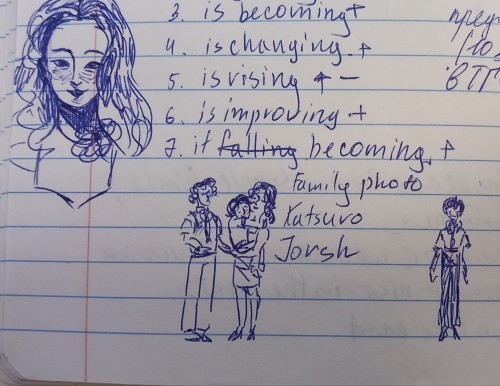 3. is becoming +
4. is changing. +
5. is rising + –
6. is improving +
7. it falling becoming. +
Family photo
Katsuro
Jorsh
пред
в ТГ